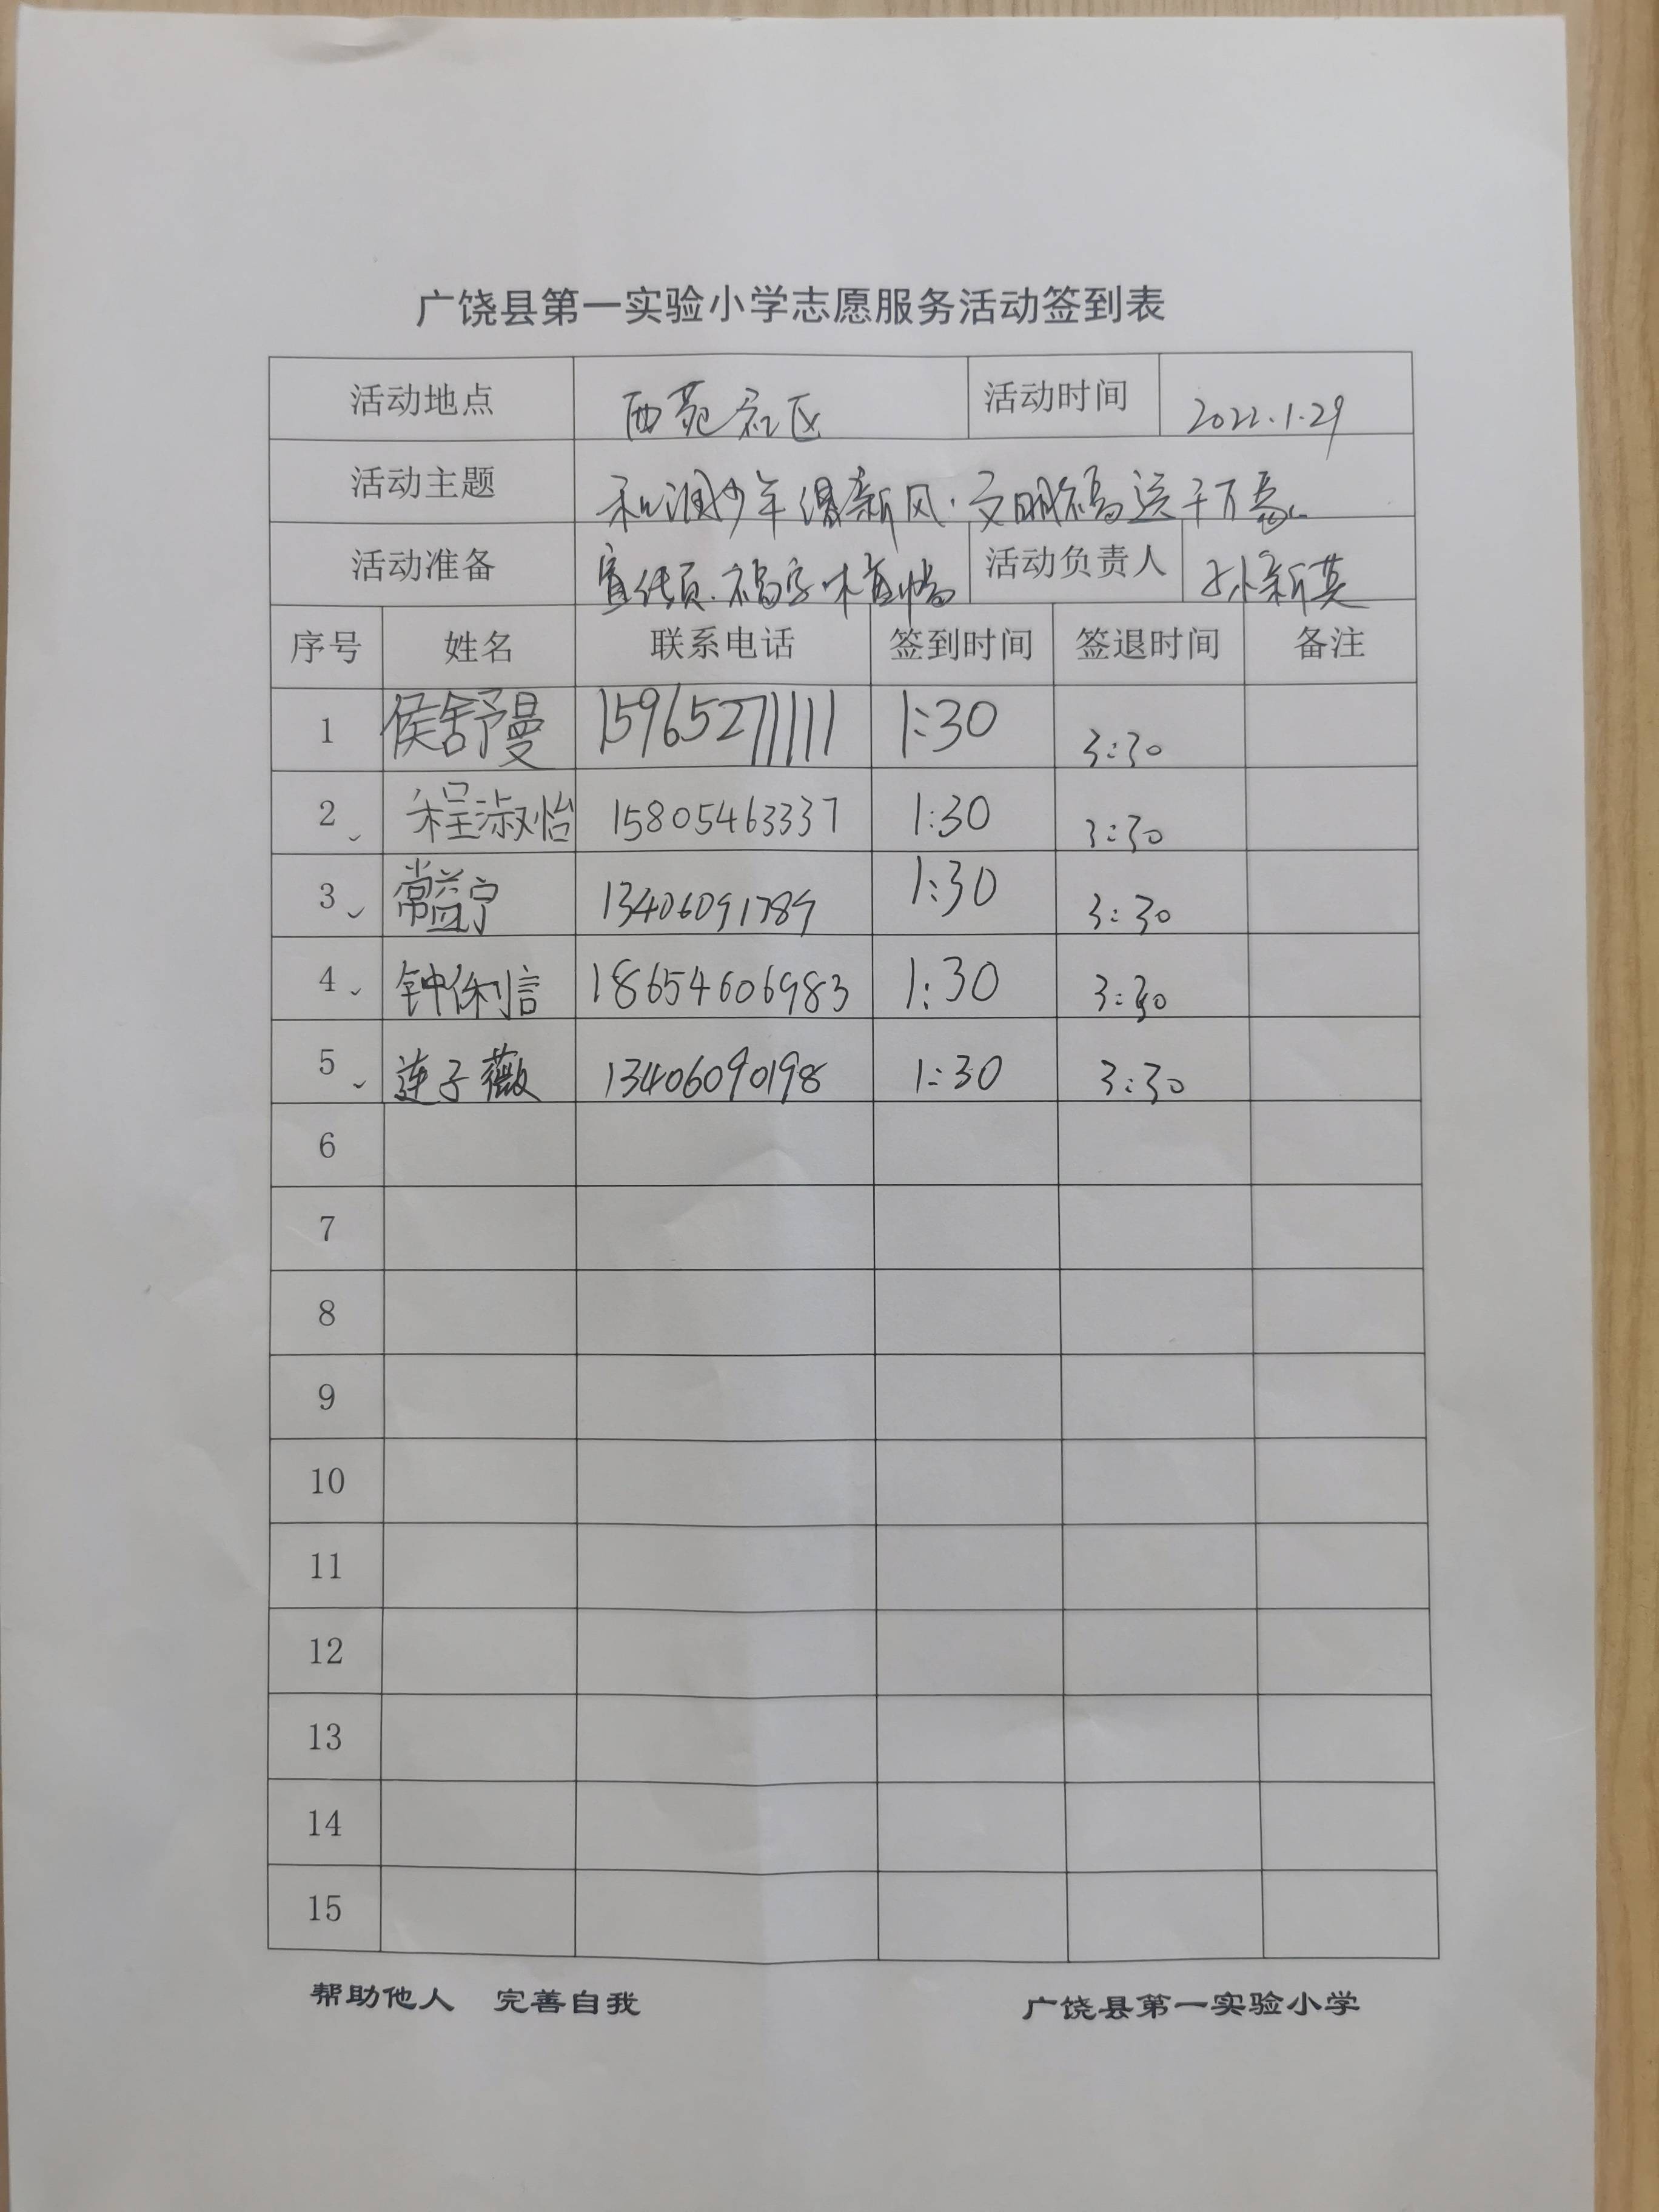 广饶县第一实验小学志愿服务活动签到表
活动地点 西苑社区 活动时间 2022.1.29
活动主题 和润少年倡新风·文明福送千万家
活动准备 宣传页.福字 活动负责人 孙新英
序号 姓名 联系电话 签到时间 签退时间 备注
1 侯舒曼 15965271111 1:30 3:30
2 程淑怡 15805463337 1:30 3:30
3 常益宁 13406091789 1:30 3:30
4 钟保利信 18654606983 1:30 3:30
5 连子薇 13406090198 1:30 3:30
6
7
8
9
10
11
12
13
14
15
帮助他人 完善自我 广饶县第一实验小学